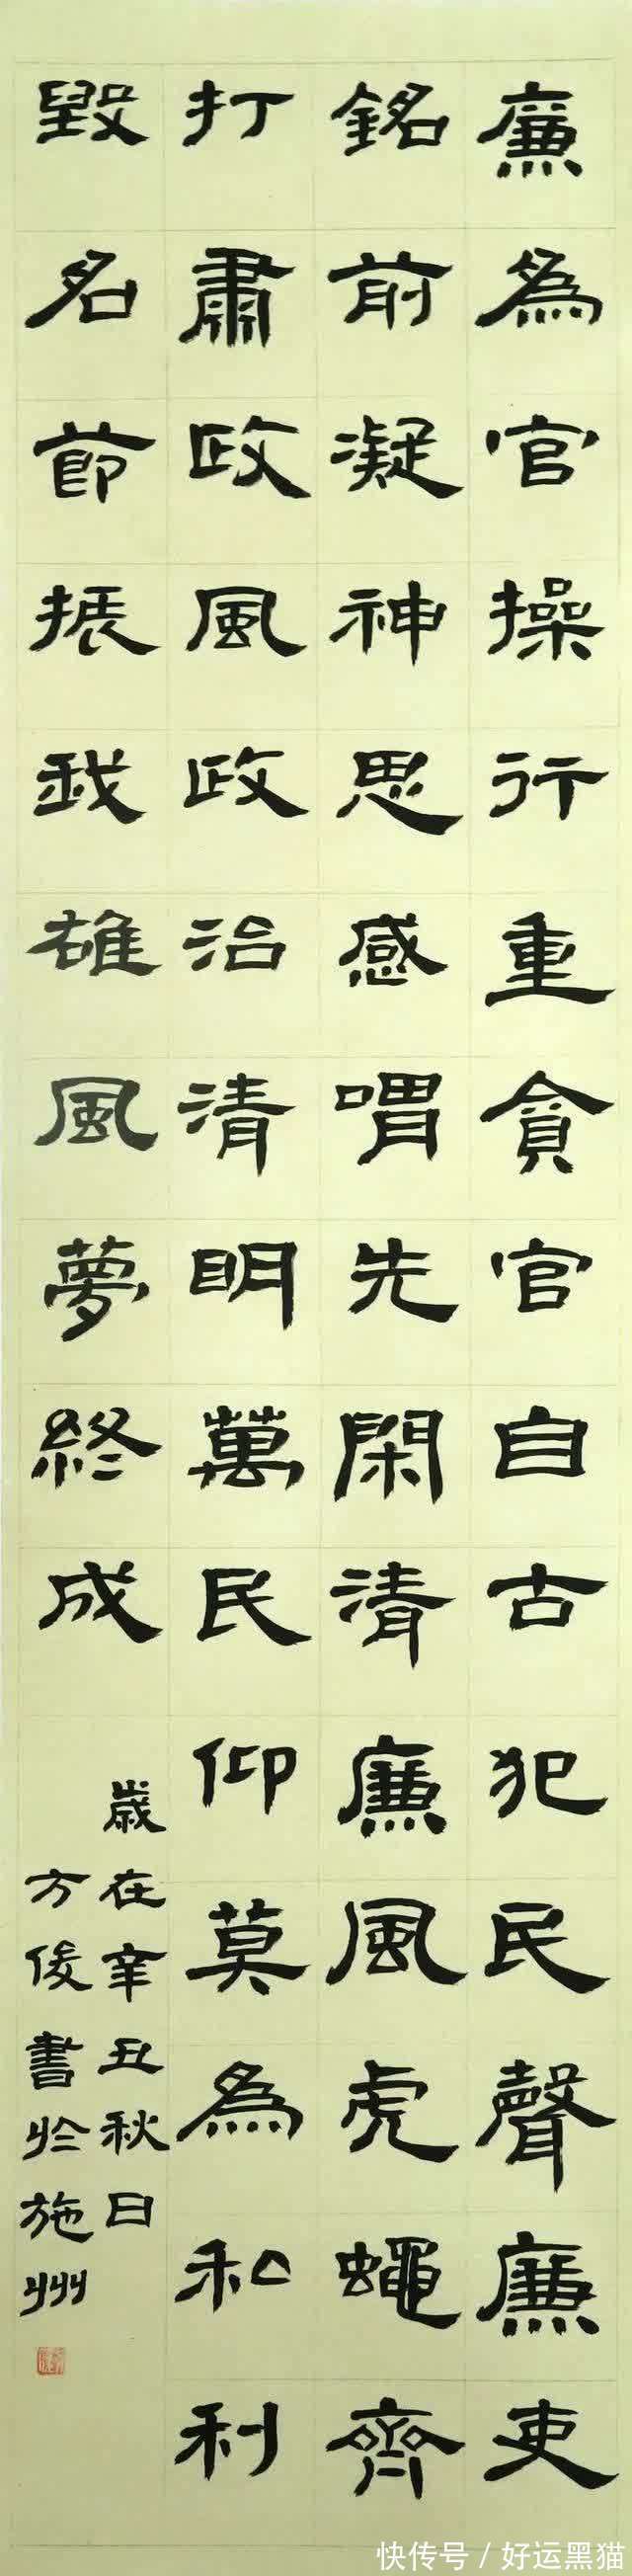 廉為官操行重貪官自古犯民聲廉吏
銘前凝神思感喟先閑清廉風虎蠅齊
打肅政風政治清明萬民仰莫為私利
毀名節振我雄風夢終成
歲在辛丑秋日
方俊書於施州
快传号 / 好运黑猫